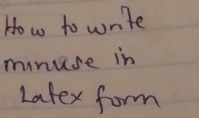 How to write
minuse in
Latex form